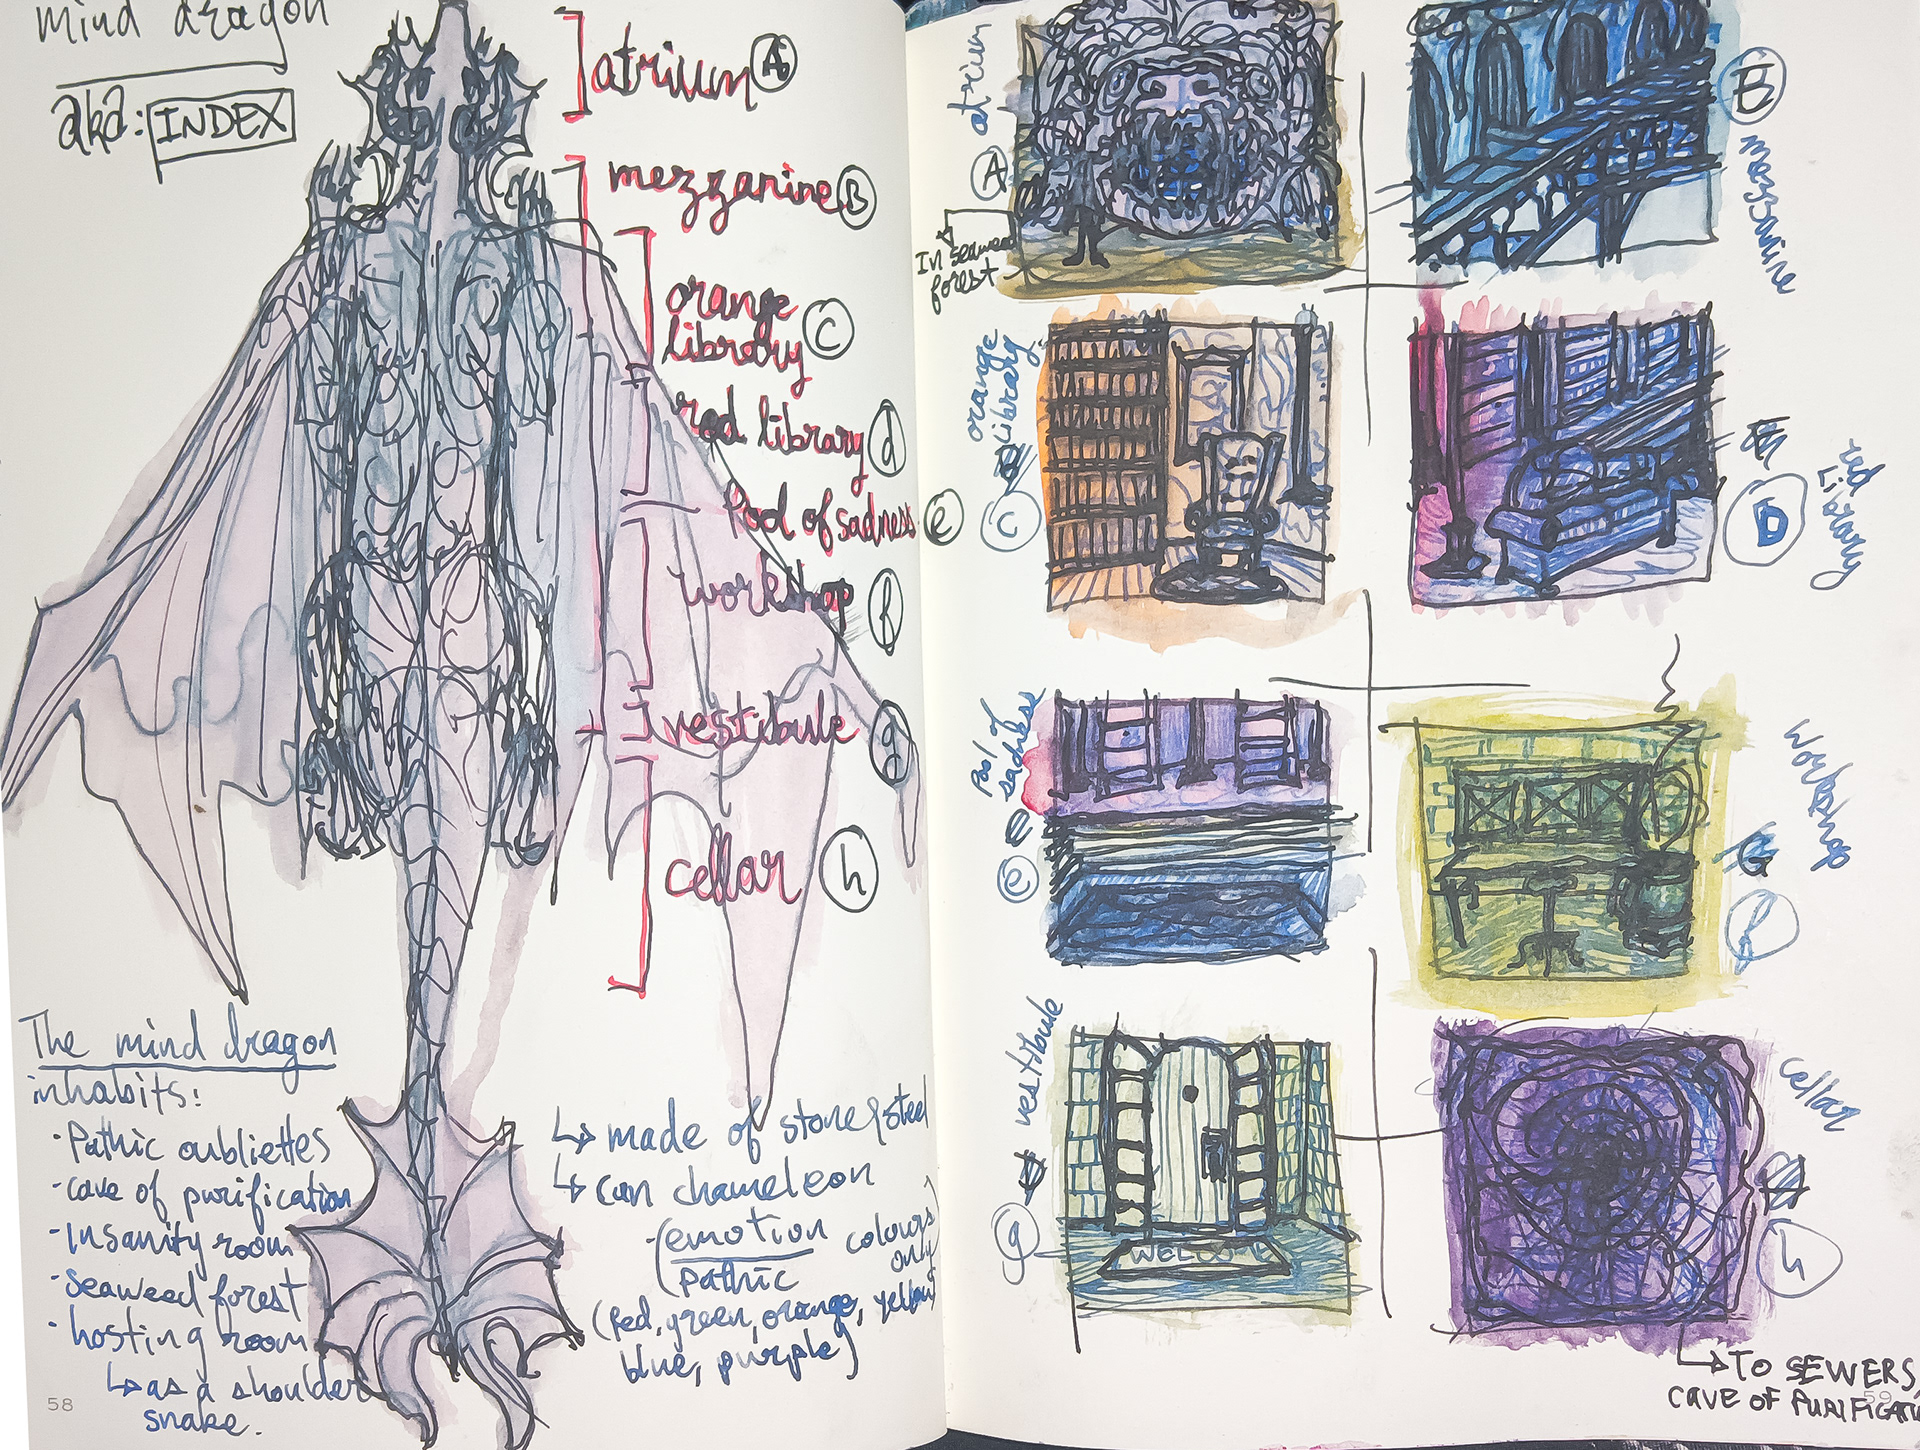 mind dragon
aka: INDEX
atrium A
mezzanine B
orange
library C
red library d
Pool of sadness e
workshop f
vestibule g
cellar h
The mind dragon
inhabits:
· Pathic oubliettes
· cave of purification
· Insanity room
· seaweed forest
· hosting room
↳ as a shoulder
snake.
↳ made of stone & steel
↳ can chameleon
(emotion colours
only)
pathic
(red, green, orange, yellow,
blue, purple)
58
A atrium
In seaweed
forest
B mezzanine
C orange
library
D red
library
e Pool of
sadness
workshop
g vestibule
WELCOME
cellar
h
↳ TO SEWERS,
CAVE OF PURIFICATI
59